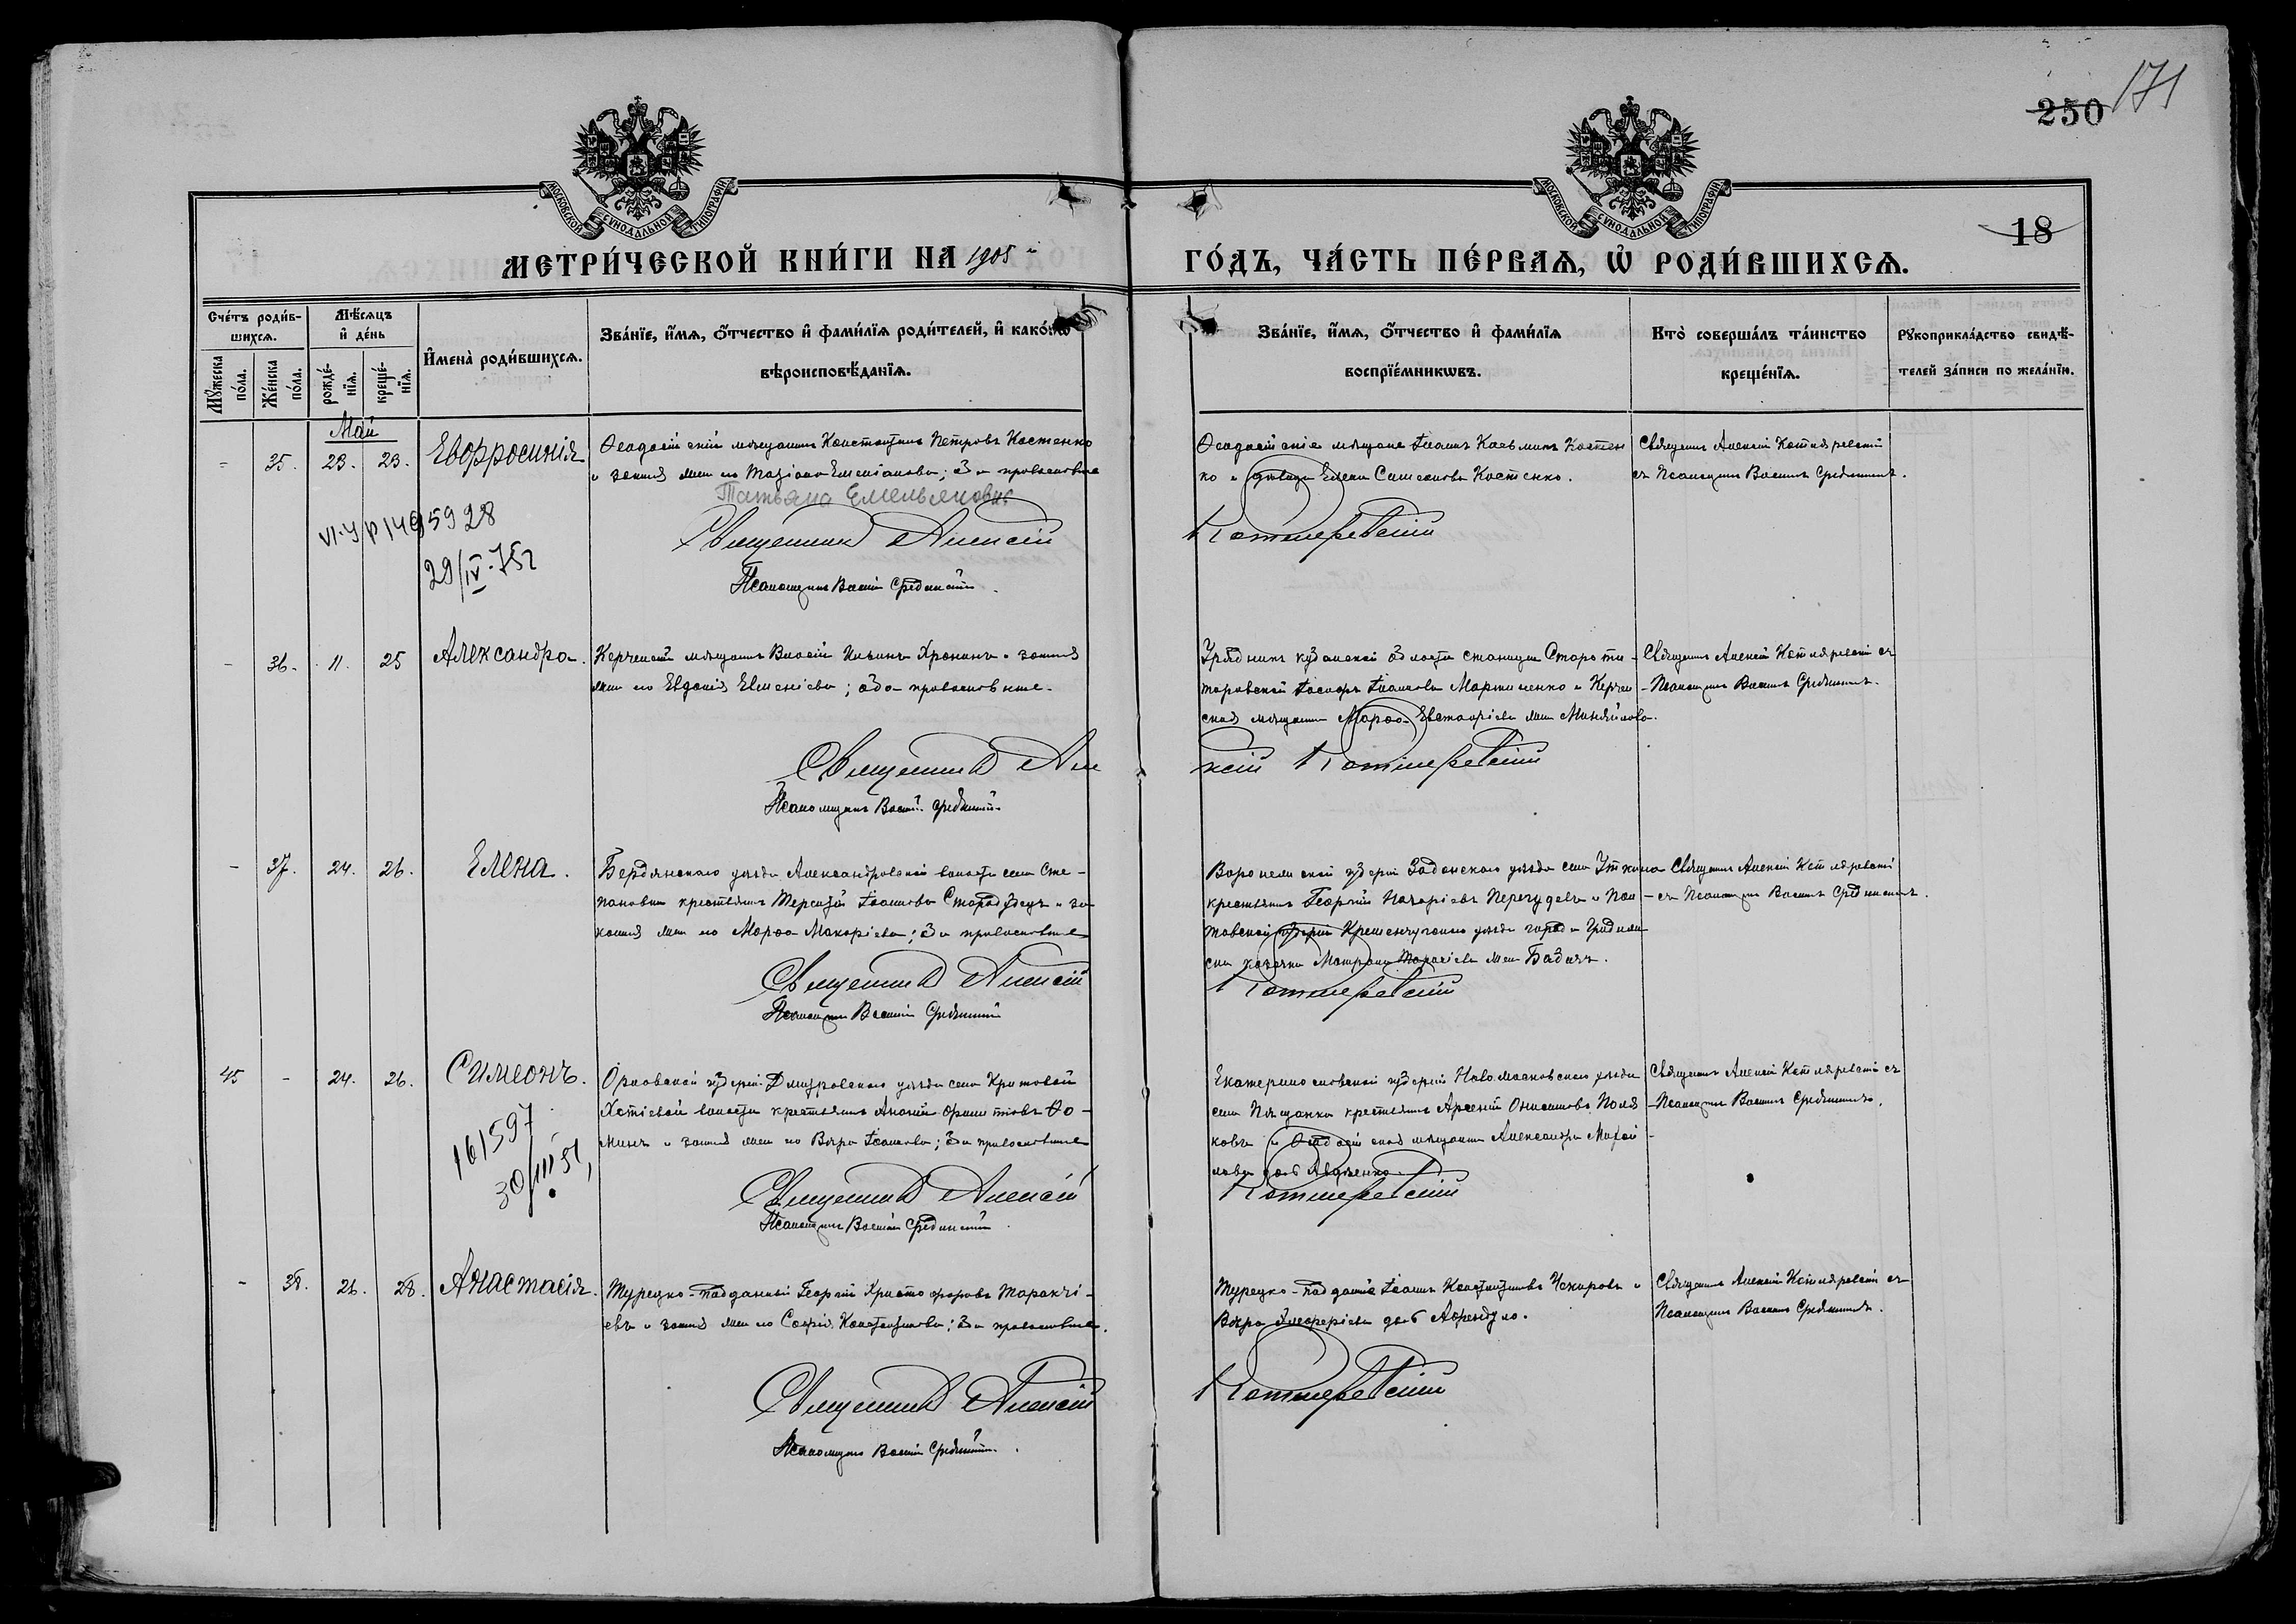 171
250
18
МОСКОВСКОЙ СѴНОДАЛЬНОЙ ТИПОГРАФІИ
МОСКОВСКОЙ СѴНОДАЛЬНОЙ ТИПОГРАФІИ
МЕТРИ́ЧЕСКОЙ КНИ́ГИ НА 1905 й
ГО́ДЪ, ЧА́СТЬ ПЕ́РВАѦ, Ѡ҆ РОДИ́ВШИХСѦ.
Сче́тъ роди́в-
шихсѧ.
Мꙋ́жеска по́ла.
Же́нска по́ла.
Мѣ́сѧцъ
и҆ де́нь
рожде́-
нїѧ.
креще́-
нїѧ.
И҆мена̀ роди́вшихсѧ.
Зва́нїе, и҆́мѧ, ѻ҆́тчество и҆ фами́лїѧ роди́телей, и҆ како́гѡ
вѣроисповѣ́данїѧ.
Зва́нїе, и҆́мѧ, ѻ҆́тчество и҆ фами́лїѧ
воспрїе́мникѡвъ.
Кто̀ соверша́лъ та́инство
креще́нїѧ.
Рꙋкоприкла́дство свидѣ́-
телей за́писи по жела́нїю.
Май
- 35. 23. 23. Евфросинія
Ѳеодосійскій мѣщанинъ Константинъ Петровъ Костенко
и законная жена его Татіана Емеліанова; оба православные
Татьяна Емельяновна
Священникъ Алексій
Котляревскій
Псаломщикъ Василій Срединскій.
Ѳеодосійскіе мѣщане Іоаннъ Косьминъ Костен
ко и дѣвица Елена Симеонова Костенко.
Священникъ Алексій Котляревскій
съ Псаломщикомъ Василіемъ Срединскимъ.
VI-УР 1495928
29/IV-75г
- 36. 11. 25 Александра.
Керченскій мѣщанинъ Василій Ильинъ Хронинъ и законная
жена его Евдокія Евменіева; оба православные.
Священникъ Але
ксій Котляревскій
Псаломщикъ Василій Срединскій.
Урядникъ кубанской области станицы Старо ти-
таровской Іосифъ Іоанновъ Мартыненко и Керчен-
ская мѣщанка Марѳа Евстафіева жена Михайлова.
Священникъ Алексій Котляревскій съ
Псаломщикомъ Василіемъ Срединскимъ.
- 37. 24. 26. Елена.
Бердянскаго уѣзда Александровской волости села Сте-
пановки крестьянинъ Терентій Іоанновъ Стародубецъ и за-
конная жена его Марѳа Макаріева; оба православные
Священникъ Алексій
Котляревскій
Псаломщикъ Василій Срединскій
Воронежской губерніи Задонскаго уѣзда села Уткина
крестьянинъ Георгій Назаріевъ Перегудовъ и Пол-
тавской губерніи Кременчугскаго уѣзда города Градиж-
ска козачка Матрона Тарасіева жена Бабичъ.
Священникъ Алексій Котляревскій
съ Псаломщикомъ Василіемъ Срединскимъ.
45 - 24. 26. Симеонъ.
Орловской губерніи Дмитровскаго уѣзда села Кротовой
волости крестьянинъ Ананій Ѳо-
минъ и законная жена его Вѣра Іоаннова; оба православные
Священникъ Алексій
Котляревскій
Псаломщикъ Василій Срединскій.
161597
30/III 51,
Екатеринославской губерніи Новомосковскаго уѣзда
села Пѣщанки крестьянинъ Арсеній Онисимовъ Поля
ковъ и Ѳеодосійская мѣщанка Александра Михай-
лова дочь
Священникъ Алексій Котляревскій съ
Псаломщикомъ Василіемъ Срединскимъ.
- 38. 26. 28. Анастасія.
Турецко-подданный Георгій Христофоровъ Таракчі-
евъ и законная жена его Софія Константинова; оба православные.
Священникъ Алексій
Котляревскій
Псаломщикъ Василій Срединскій.
Турецко-подданые Іоаннъ Константиновъ Чакировъ и
Вѣра Елевферіева дочь Афендуло.
Священникъ Алексій Котляревскій съ
Псаломщикомъ Василіемъ Срединскимъ.